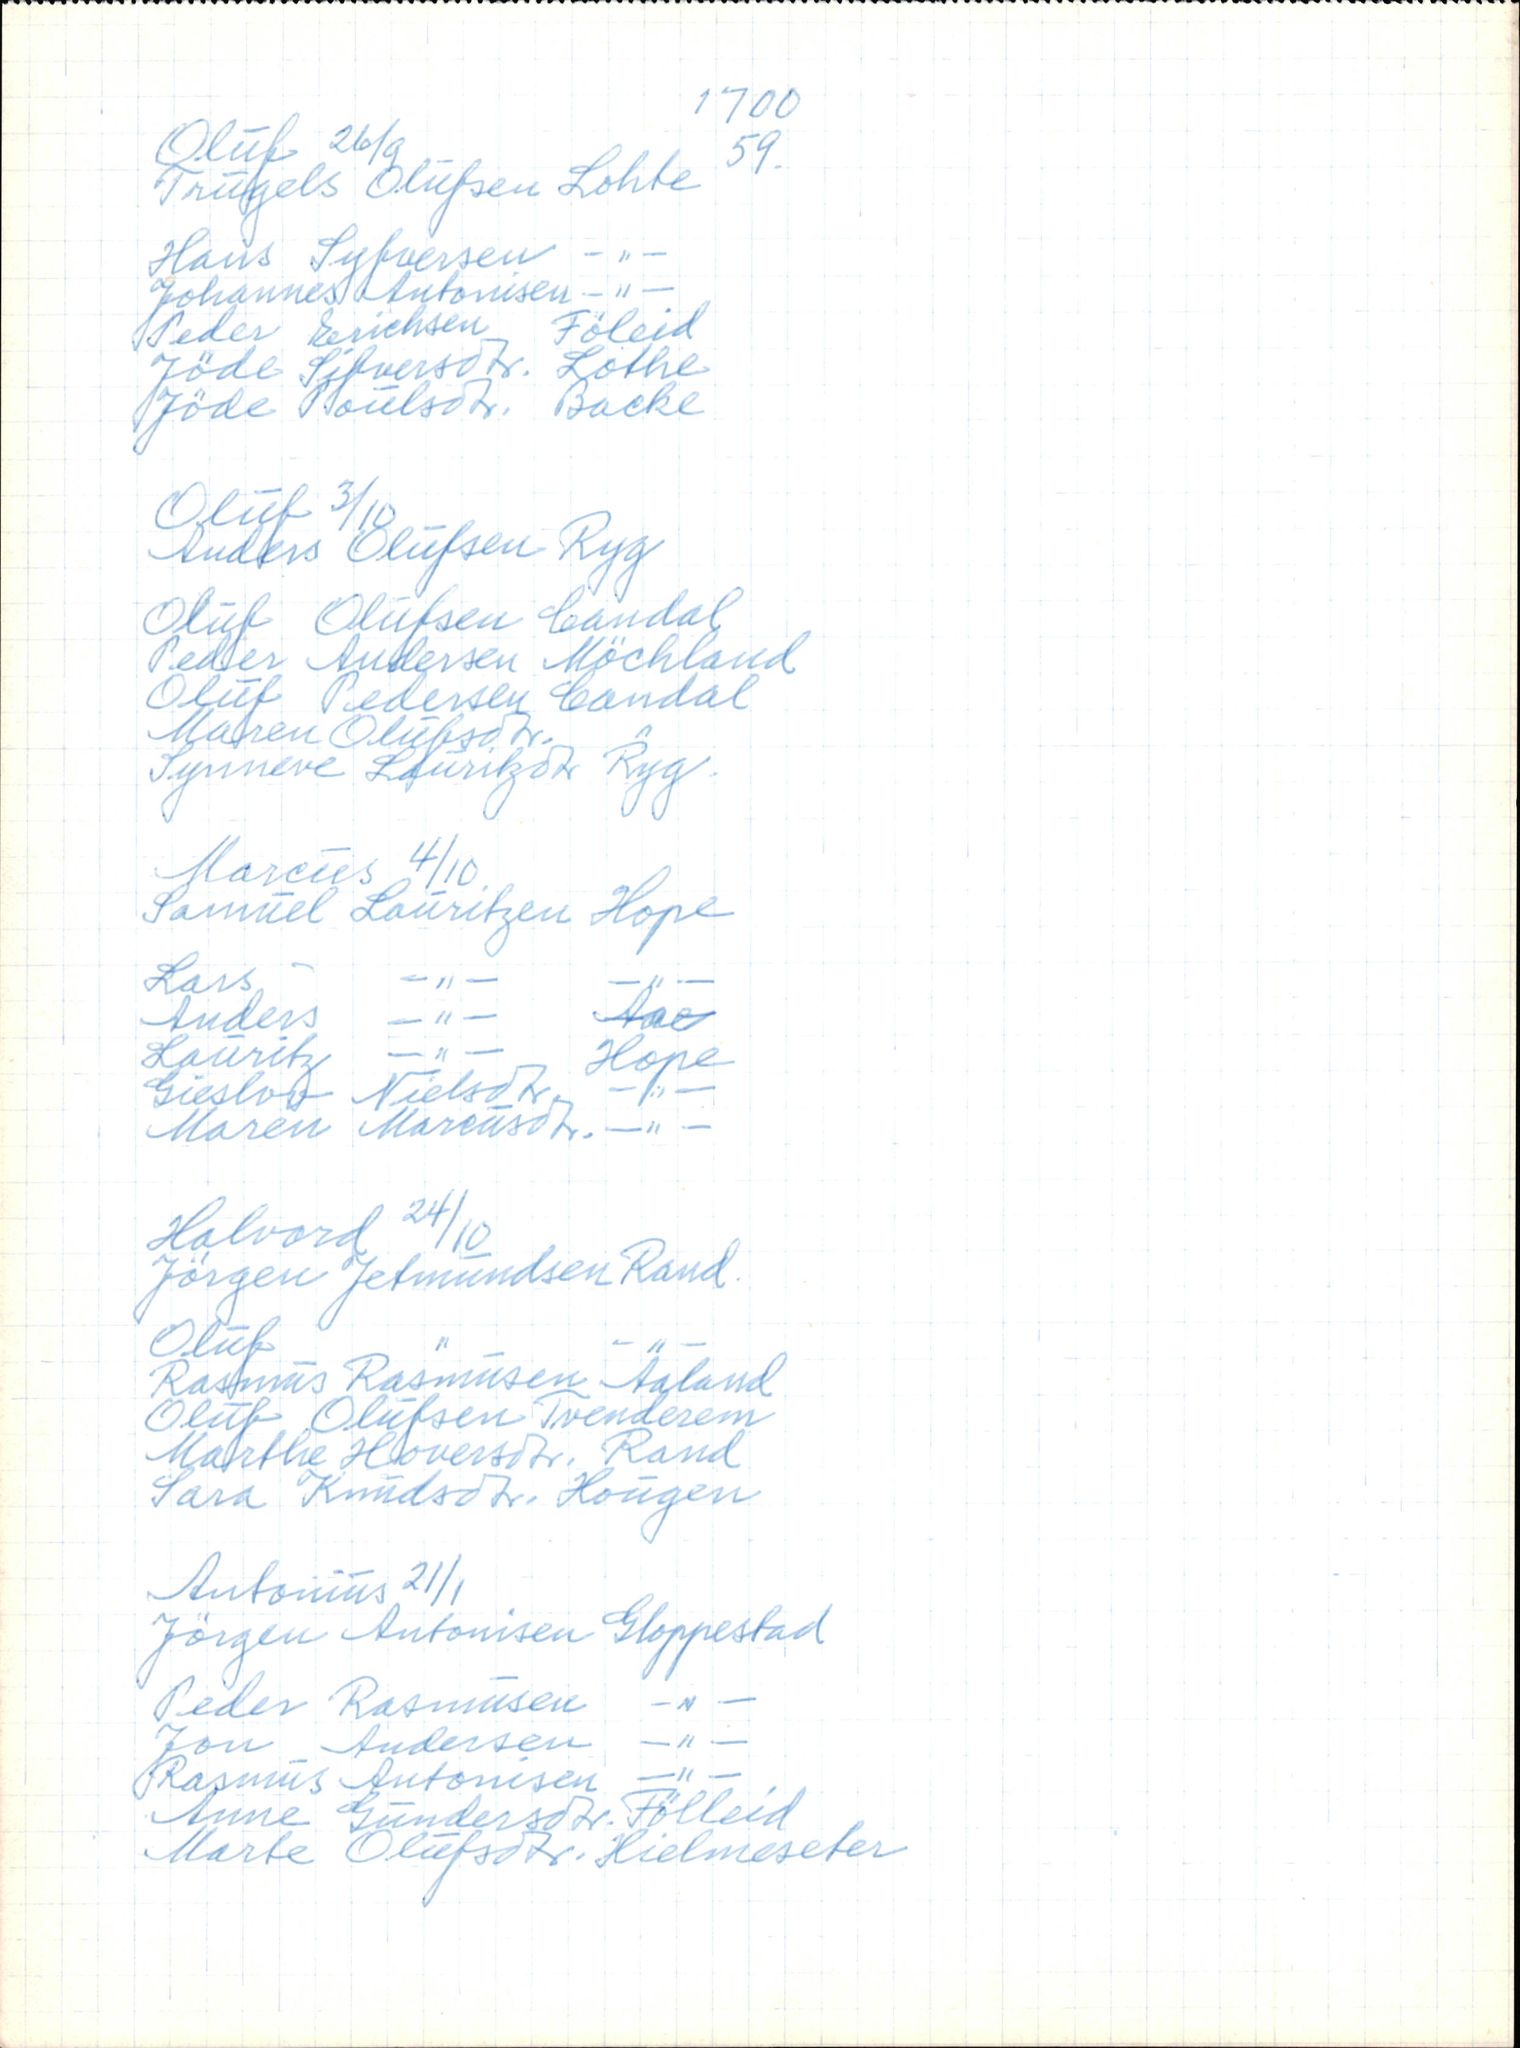 1700
59.
Oluf 26/9
Trugels Olufsen Lohte
Hans Syfversen -"-
Johannes Antonisen -"-
Peder Erichsen Föleid
Jöde Sifversdtr. Lothe
Jöde Poulsdtr. Backe
Oluf 3/10
Anders Olufsen Ryg
Oluf Olufsen Candal
Peder Andersen Möchland
Oluf Pedersen Candal
Maren Olufsdtr.
Synneve Lauritzdtr Ryg.
Marcus 4/10.
Samuel Lauritzen Hope
Lars -"- -"-
Anders -"- Aae
Lauritz -"- Hope
Gieslov Nielsdtr. -"-
Maren Marcusdtr. -"-
Halvord 24/10
Jörgen Jetmundsen Rand.
Oluf " -"-
Rasmus Rasmusen Aaland
Oluf Olufsen Tvenderem
Marthe Hoversdtr. Rand
Sara Knudsdtr. Hougen
Antonius 21/1
Jörgen Antonisen Gloppestad
Peder Rasmusen -"-
Jon Andersen -"-
Rasmus Antonisen -"-
Anne Gundersdtr. Fölleid
Marte Olufsdtr. Hielmeseter